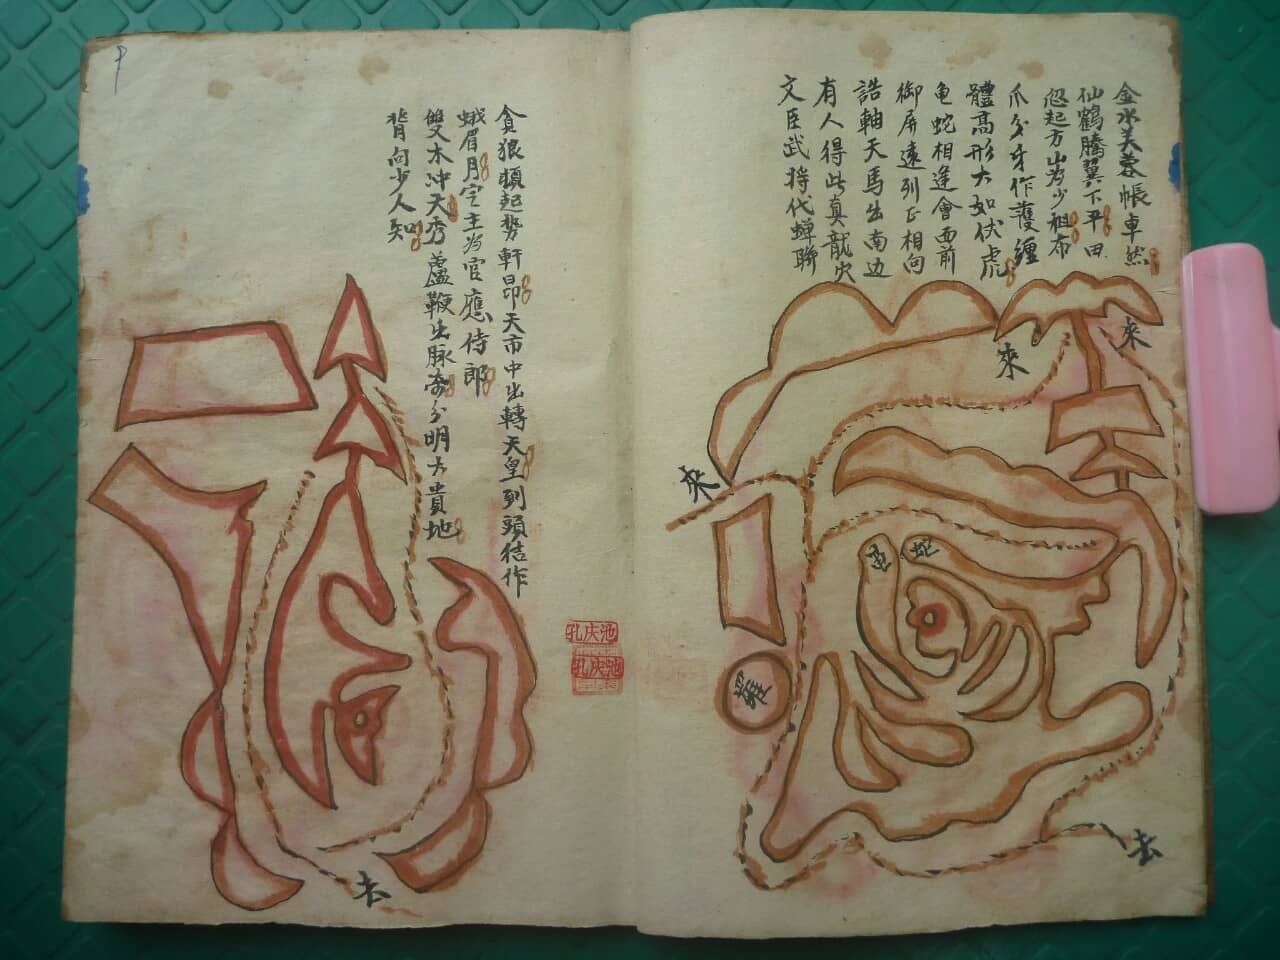 金水芙蓉帳卓然
仙鶴騰翼下平田
忽起方山为少祖布
爪分牙作護纏
體高形大如伏虎
龟蛇相逢會面前
御屏遠列正相向
誥軸天馬出南边
有人得此真龍穴
文臣武将代蟬聯
來
來
來
蛇
羅
去
貪狼頓起势軒昂天市中出轉天皇到頭结作
蛾眉月定主为官應侍郎
雙木冲天秀蘆鞭出脉分明大貴地
背向少人知
去
孔庆池
孔庆池